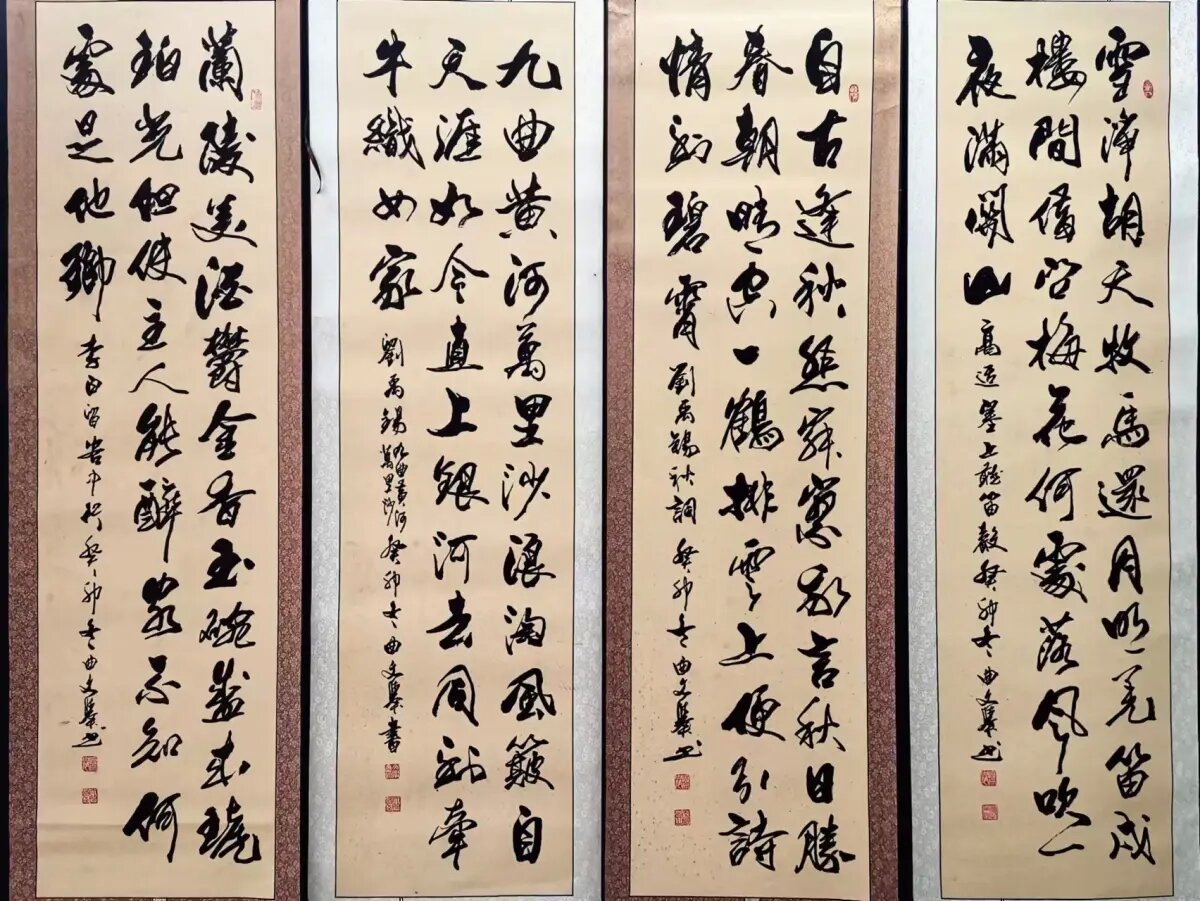 雪淨胡天牧馬還月明羌笛戍
樓間借問梅花何處落風吹一
夜滿關山 高适塞上聽笛聲 癸卯冬曲文舉書
自古逢秋悲寂寥我言秋日勝
春朝晴空一鶴排雲上便引詩
情到碧霄 劉禹錫秋詞 癸卯冬曲文舉書
九曲黃河萬里沙浪淘風簸自
天涯如今直上銀河去同到牽
牛織女家 劉禹錫 九曲黃河萬里沙 癸卯冬曲文舉書
蘭陵美酒鬱金香玉碗盛來琥
珀光但使主人能醉客不知何
處是他鄉 李白 客中作 癸卯冬曲文舉書